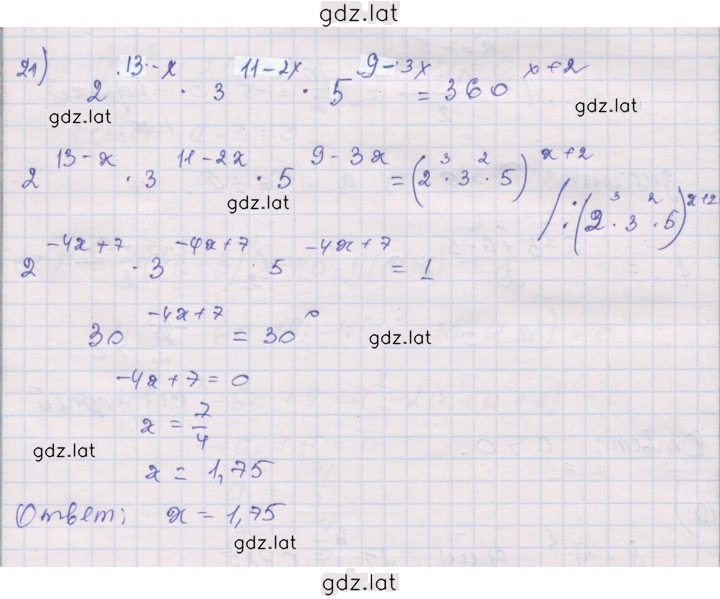 gdz.lat
21) 2^{13-x} · 3^{11-2x} · 5^{9-3x} = 360^{x+2}
gdz.lat gdz.lat
2^{13-x} · 3^{11-2x} · 5^{9-3x} = (2^3 · 3^2 · 5)^{x+2} / : (2^3 · 3^2 · 5)^{x+2}
gdz.lat
2^{-4x+7} · 3^{-4x+7} · 5^{-4x+7} = 1
30^{-4x+7} = 30^0
gdz.lat
-4x + 7 = 0
x = 7/4
gdz.lat
x = 1,75
Ответ: x = 1,75
gdz.lat
gdz.lat